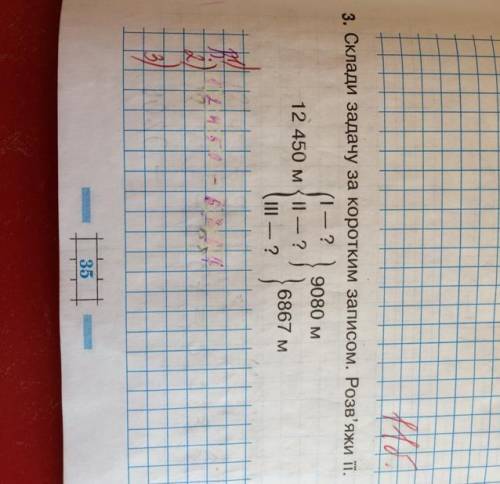 11 б.
3. Склади задачу за коротким записом. Розв'яжи її.
I — ?
9080 м
12 450 м
II — ?
6867 м
III — ?
2) 12450 -
3)
35